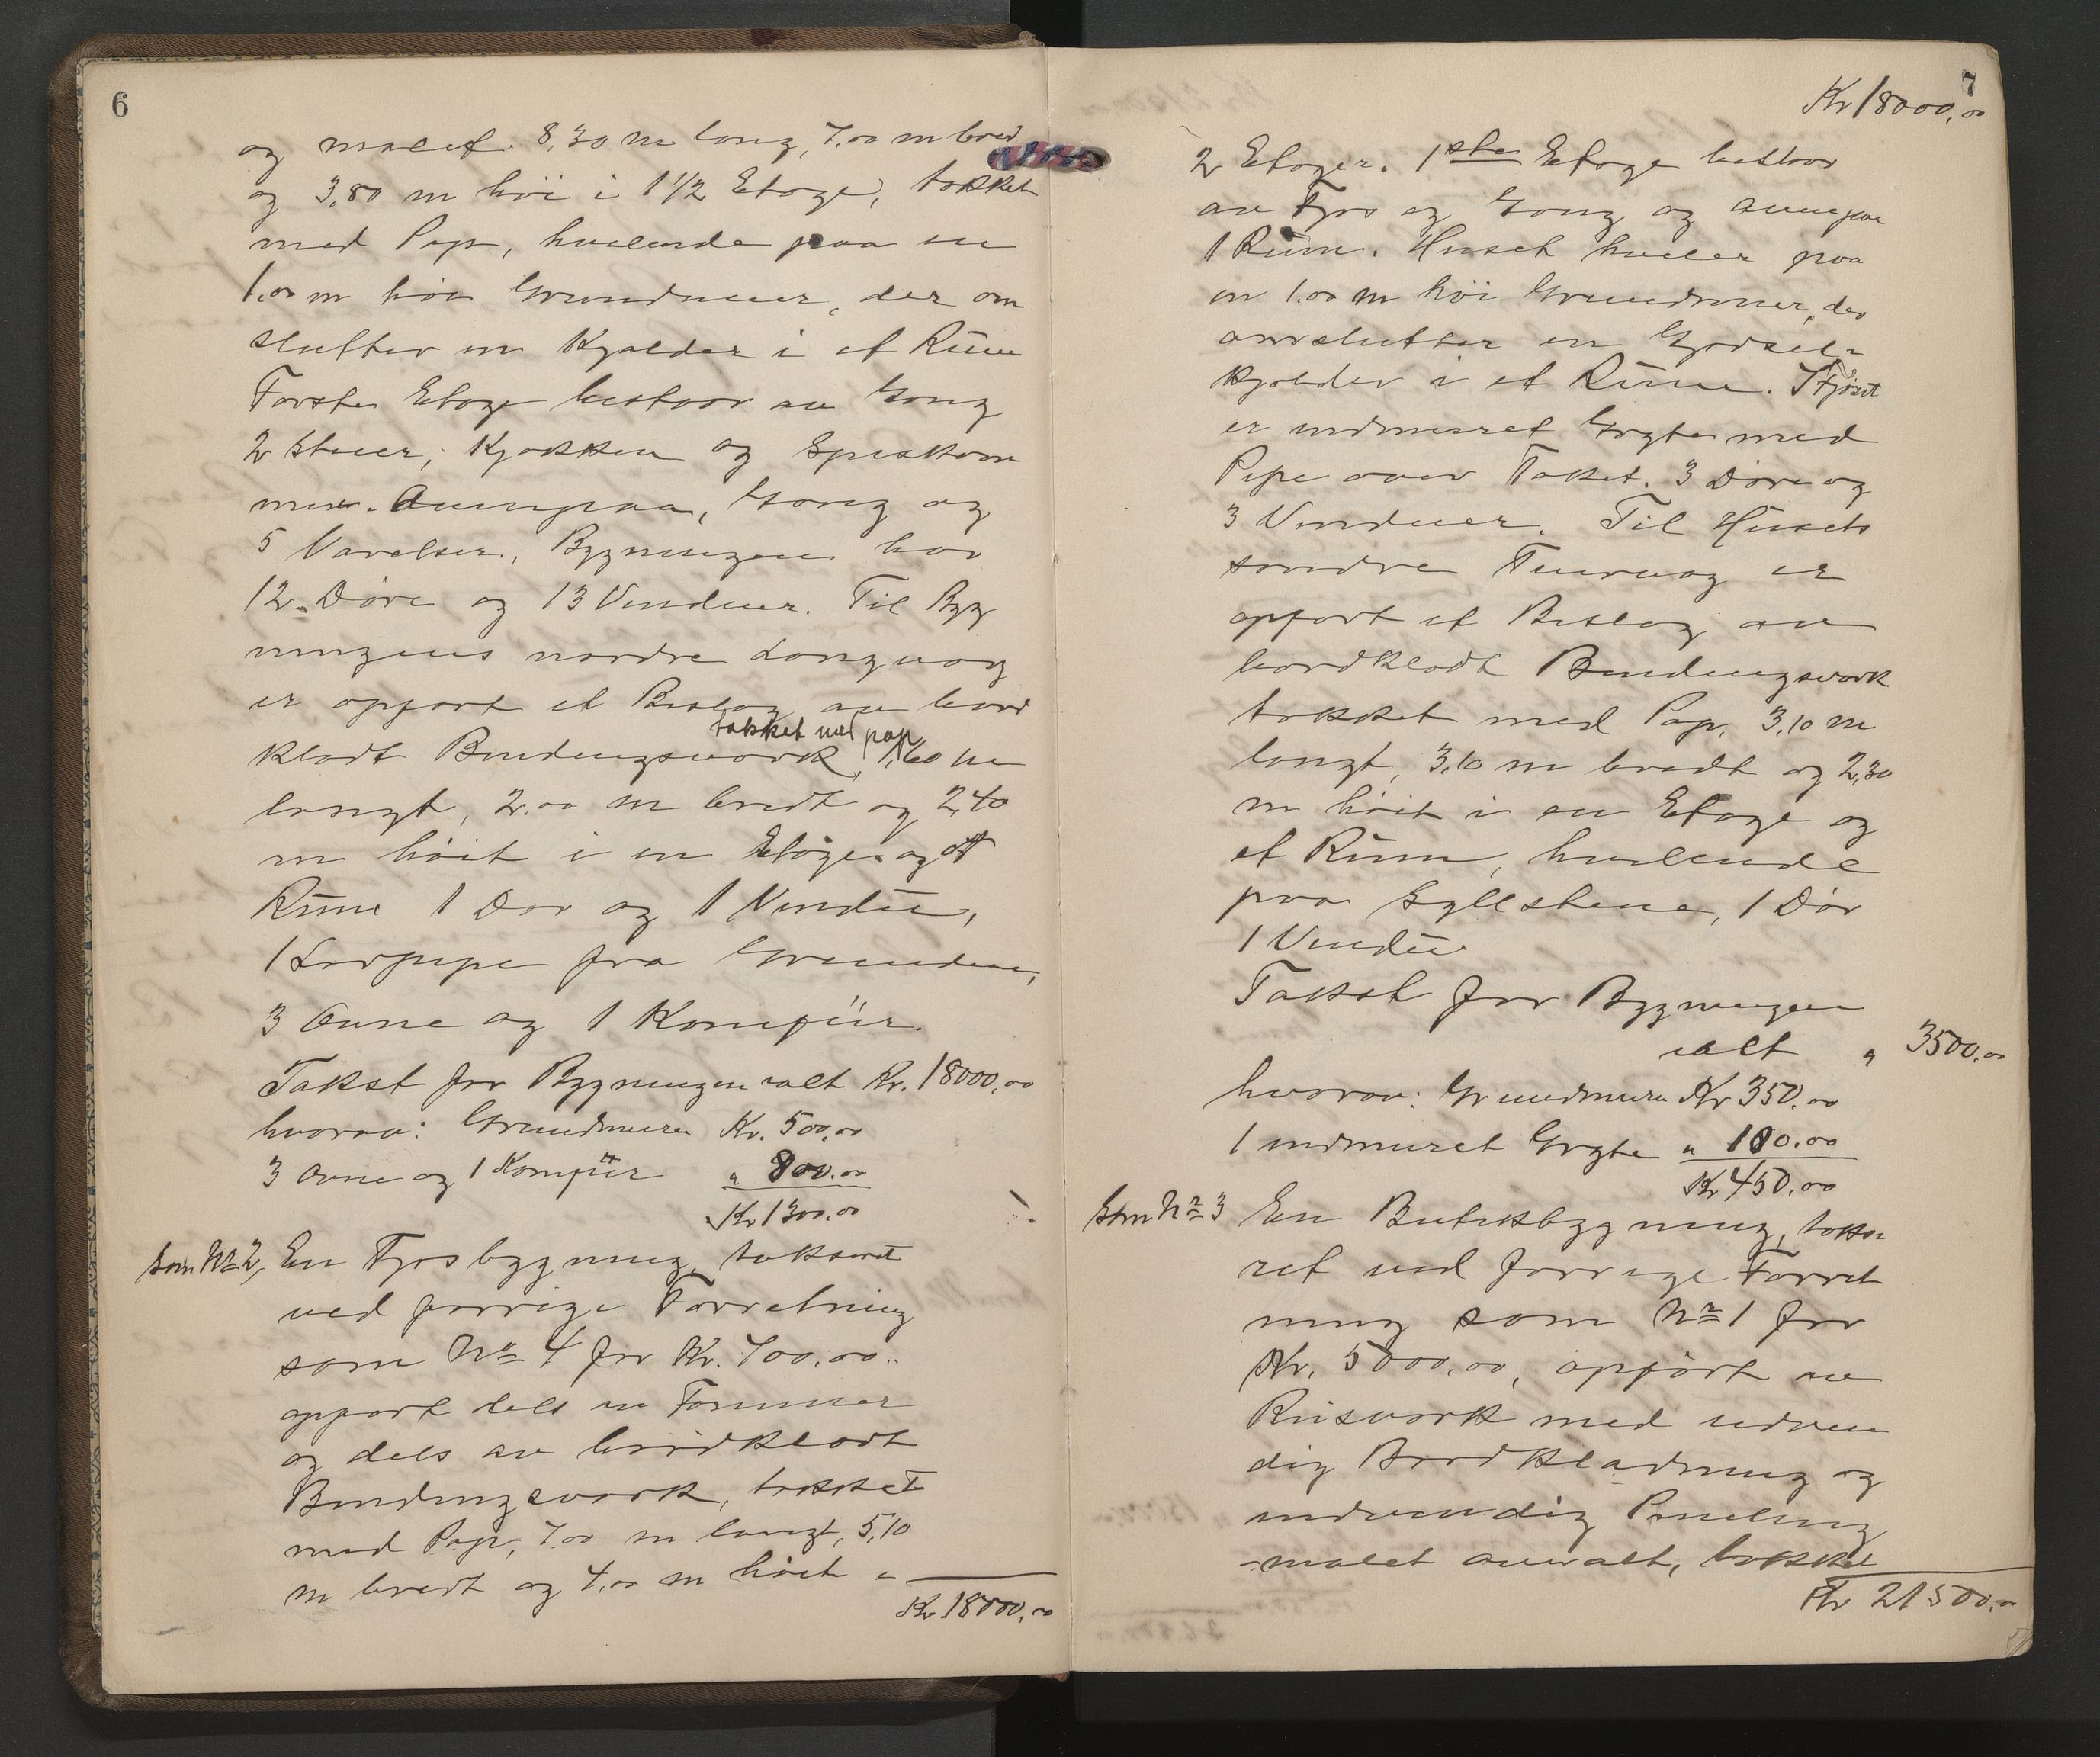 6
og malet. 8,30 m lang, 7,00 m bred
og 3,80 m høi i 1 1/2 Etage, tækket
med Pap, hvilende paa en
1,00 m høi Grundmuur, der om
slutter en Kjælder i et Rum
Første Etage bestaar av Gang
2 Stuer, Kjøkken og Spiskam
mer. Ovenpaa, Gang og
5 Værelser, Bygningen har
12 Døre og 13 Vinduer. Til Byg
ningens nordre Langvæg
er opført et Bislag av bord
tækket med pap
klædt Bindingsværk, 1,60 m
langt, 2.00 m bredt og 2,40
m høit i en Etage og et
Rum 1 Dør og 1 Vindu,
1 Lerpipe fra Grunden,
3 Ovne og 1 Komfür.
Takst for Bygningen ialt Kr. 18000,00
hvorav: Grundmuren Kr. 500,00
3 Ovne og 1 Komfür " 800.00
Kr 1300,00
Som No 2, En Fjøsbygning, takseret
ved forrige Forretning
som No 4 for Kr. 700,00
opført dels av Tømmer
og dels av bordklædt
Bindingsværk, tækket
med Pap, 7.00 m langt, 5,10
m bredt og 4,00 m høit i
Kr 18000,00
7
Kr 18000,00
2 Etager. 1ste Etage bestaar
av Fjøs og Gang og ovenpaa
1 Rum. Huset hviler paa
en 1.00 m høi Grundmuur, der
omslutter en Gjødsel-
kjælder i et Rum. I Fjøset
er indmuret Gryte med
Pipe over Taket. 3 Døre og
3 Vinduer. Til Husets
søndre Tvervæg er
opført et Bislag av
bordklædt Bindingsværk
tækket med Pap, 3,10 m
langt, 3,10 m bredt og 2,30
m høit i en Etage og
et Rum, hvilende
paa Syllstene, 1 Dør
1 Vindu
Takst for Bygningen
ialt " 3500,00
hvorav: Grundmuren Kr 350,00
1 indmuret Gryte " 100.00
Kr 450,00
Som No 3 En Butikbygning, takse
ret ved forrige Forret
ning som No 1 for
Kr. 5000,00, opført av
Reisværk med udven
dig Bordklædning og
indvendig Paneling
malet overalt, tækket
Kr 21500,00